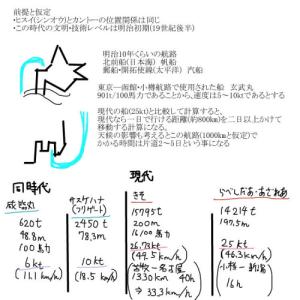 前提と仮定
・ヒスイ(シンオウ)とカントーの位置関係は同じ
・この時代の文明・技術レベルは明治初期(19世紀後半)
明治10年くらいの航路
北前船(日本海) 帆船
郵船・開拓使線(太平洋) 汽船
東京―函館・小樽航路で使用された船 玄武丸
901t/100馬力であることから、速度は5～10ktであるとする
現代の船(25kt)と比較して計算すると、
現代なら一日で行ける距離(約800km)を二日以上かけて
移動する計算になる。
天候の影響も考えるとこの航路(1000kmと仮定)で
かかる時間は片道2～5日という事になる
同時代
現代
咸臨丸
620t
48.8m
100馬力
6kt
(11.1km/h)
サスケハナ
(フリゲート)
2450t
78.3m
10kt
(18.5km/h)
きそ
15795t
200m
16100馬力
26.73kt
(49.5km/h)
苫牧―名古屋
1330km 40h
⇒33.3km/h
らべんだあ・あざれあ
14214t
197.5m
25kt
(46.3km/h)
小樽―新潟
16h